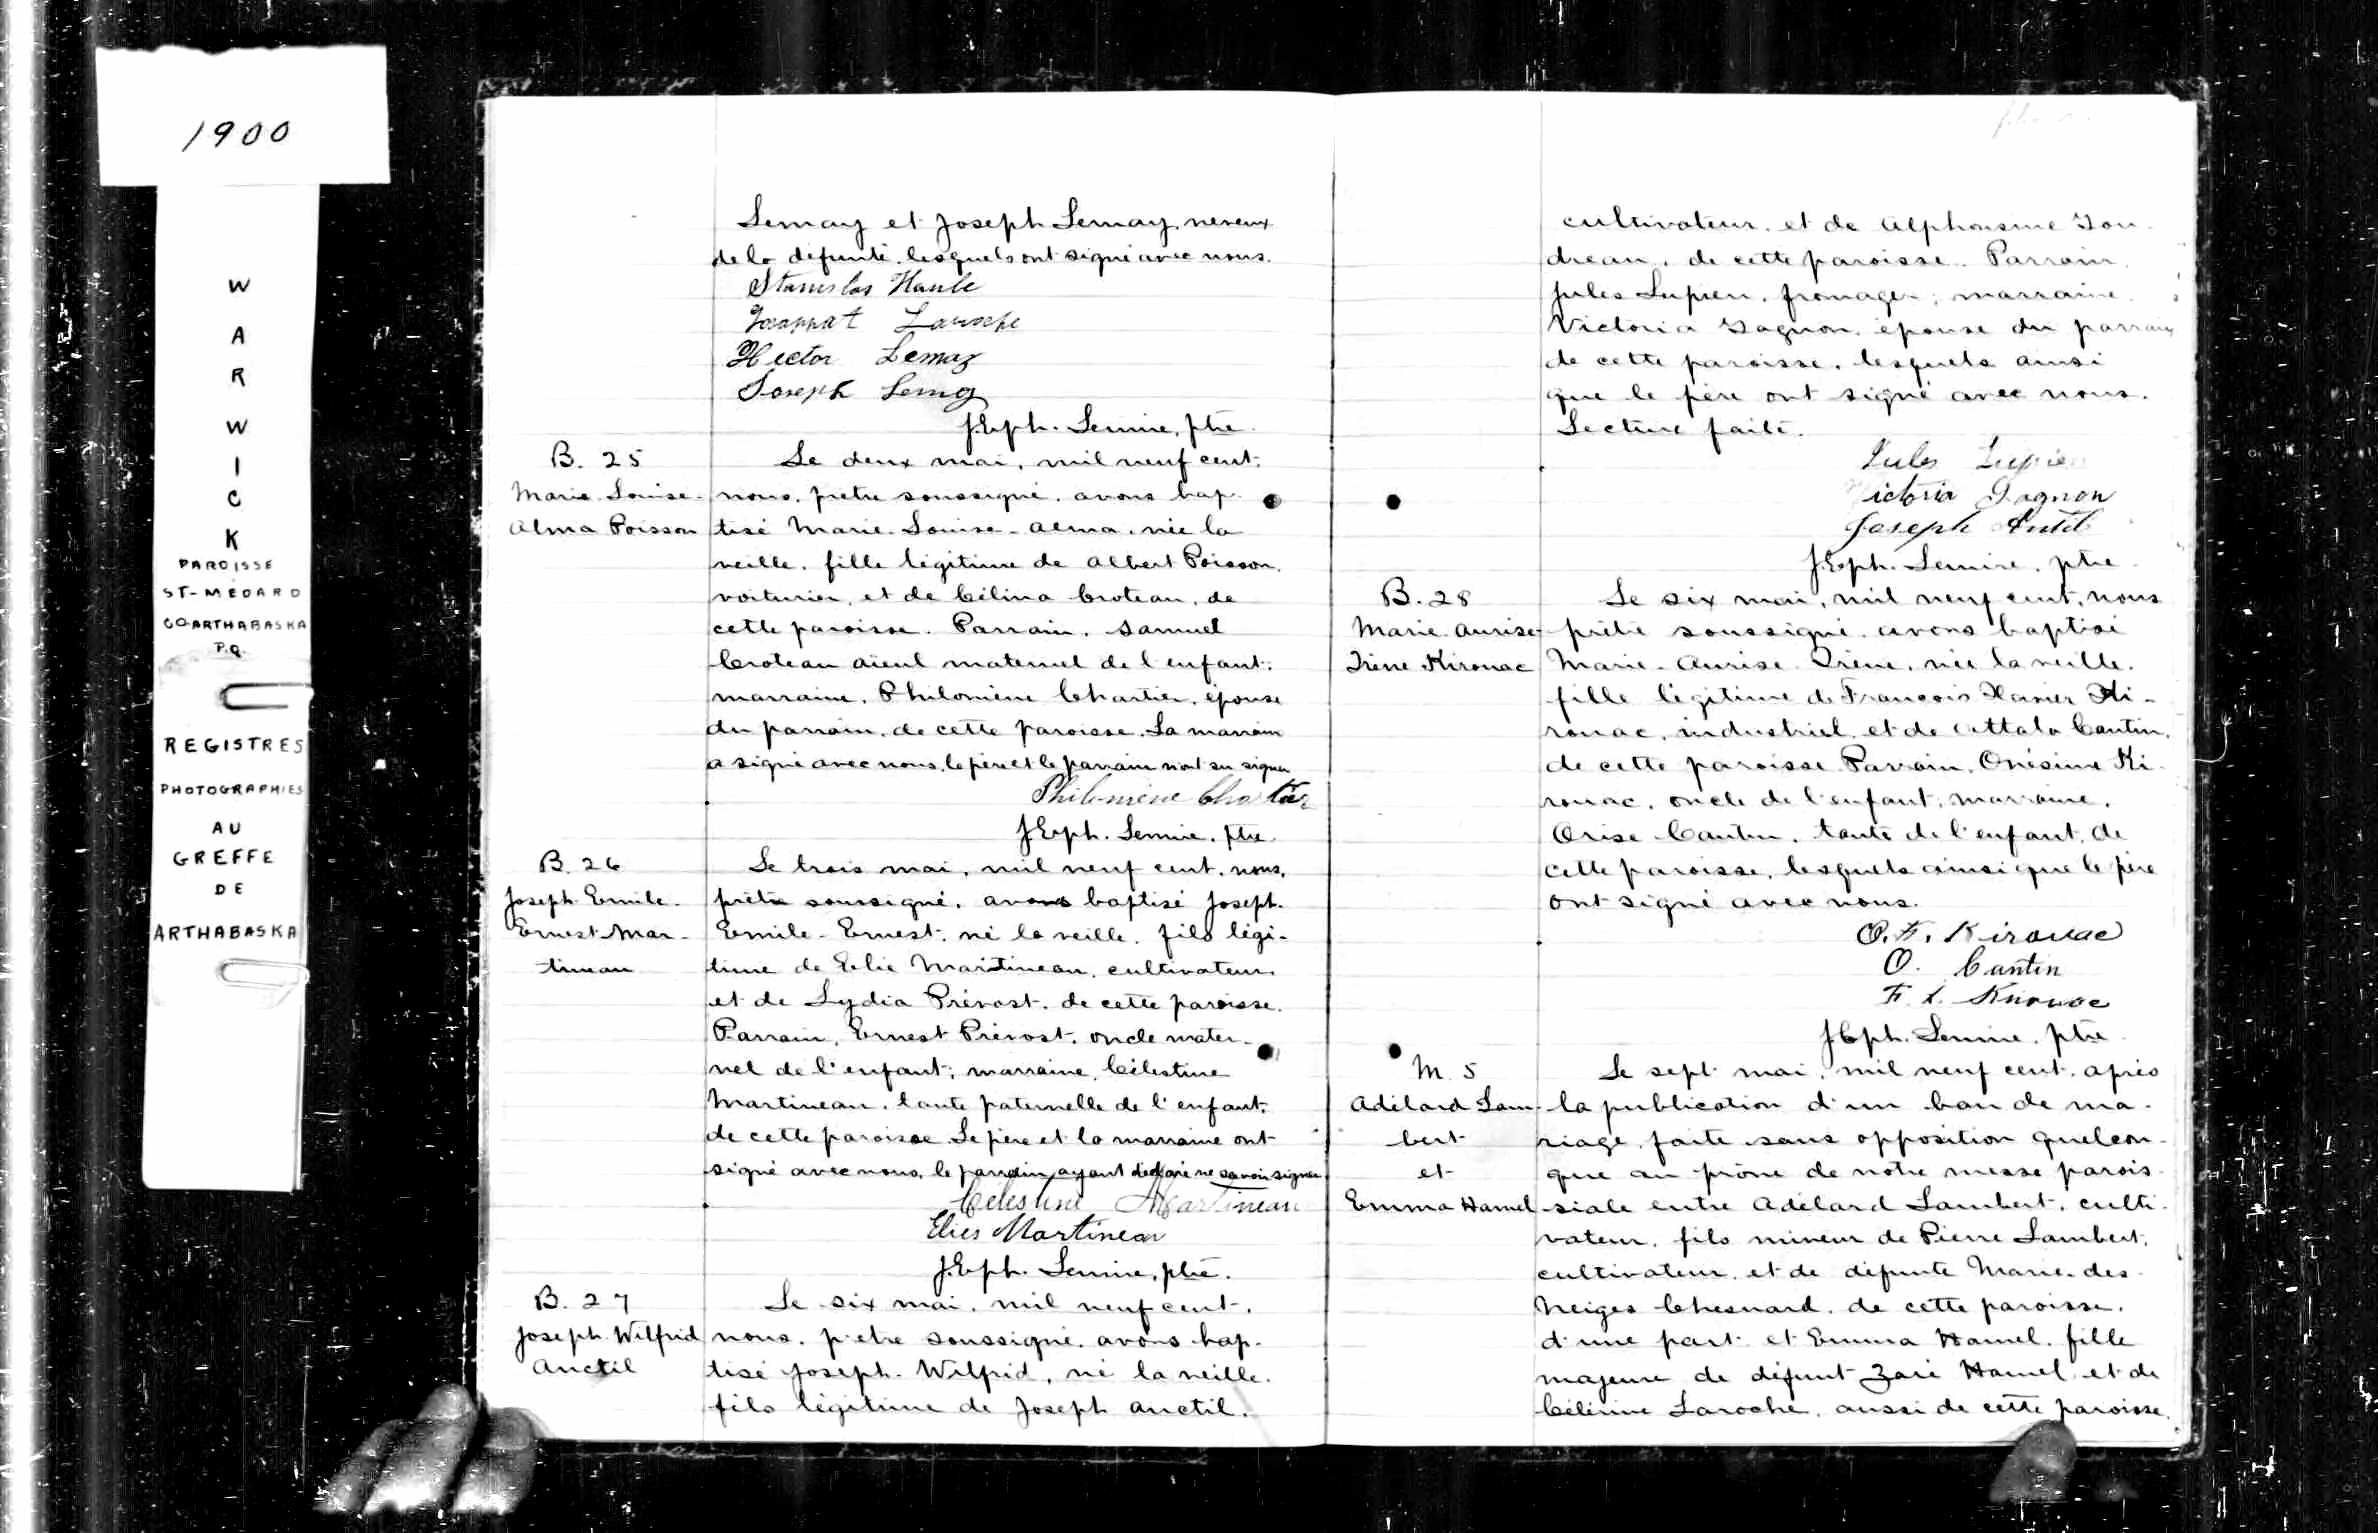 1900
W
A
R
W
I
C
K
PAROISSE
ST-MÉDARD
CO ARTHABASKA
P.Q.
REGISTRES
PHOTOGRAPHIÉS
AU
GREFFE
DE
ARTHABASKA
Lemay et Joseph Lemay, neveux
de la défunte, lesquels ont signé avec nous.
Stanislas Houle
Laroche
Hector Lemay
Joseph Lemay
J. Eph. Lemire, ptre.
B. 25
Marie-Louise-
Alma Poisson
Le deux mai, mil neuf cent,
nous, prêtre soussigné, avons bap-
tisé Marie-Louise-Alma, née la
veille, fille légitime de Albert Poisson,
voiturier, et de Célina Croteau, de
cette paroisse. Parrain, Samuel
Croteau aïeul maternel de l'enfant;
marraine, Philomène Chartier, épouse
du parrain, de cette paroisse. La marraine
a signé avec nous, le père et le parrain n'ont su signer
Philomène Chartier
J. Eph. Lemire, ptre
B. 26
Joseph-Emile-
Ernest Mar-
tineau
Le trois mai, mil neuf cent, nous,
prêtre soussigné, avons baptisé Joseph-
Emile-Ernest, né la veille, fils légi-
time de Elie Martineau, cultivateur
et de Lydia Prévost, de cette paroisse.
Parrain, Ernest Prévost, oncle mater-
nel de l'enfant; marraine, Célestine
Martineau, tante paternelle de l'enfant,
de cette paroisse. Le père et la marraine ont
signé avec nous, le parrain ayant déclaré ne savoir signer
Célestine Martineau
Elies Martineau
J. Eph. Lemire, ptre.
B. 27
Joseph-Wilfrid
Anctil
Le six mai, mil neuf cent,
nous, prêtre soussigné, avons bap-
tisé Joseph-Wilfrid, né la veille,
fils légitime de Joseph Anctil,
cultivateur, et de Alphonsine Gou-
dreau, de cette paroisse. Parrain,
Jules Lupien, fromager; marraine
Victoria Gagnon, épouse du parrain,
de cette paroisse, lesquels ainsi
que le père ont signé avec nous.
Lecture faite.
Jules Lupien
Victoria Gagnon
Joseph Antil
J. Eph. Lemire, ptre
B. 28
Marie-Aurise-
Irène Kirouac
Le six mai, mil neuf cent, nous
prêtre soussigné, avons baptisé
Marie-Aurise-Irène, née la veille,
fille légitime de François Xavier Ki-
rouac, industriel, et de Attala Cantin,
de cette paroisse. Parrain, Onésime Ki-
rouac, oncle de l'enfant; marraine,
Orise Cantin, tante de l'enfant, de
cette paroisse, lesquels ainsi que le père
ont signé avec nous.
O. F. Kirouac
O. Cantin
F. X. Kirouac
J. Eph. Lemire, ptre
M. 5
Adélard Lam-
bert
et
Emma Hamel
Le sept mai, mil neuf cent, après
la publication d'un ban de ma-
riage, faite sans opposition quelcon-
que au prône de notre messe parois-
siale entre Adélard Lambert, culti-
vateur, fils mineur de Pierre Lambert,
cultivateur, et de défunte Marie-des-
Neiges Chesnard, de cette paroisse,
d'une part; et Emma Hamel, fille
majeure de défunt Zoré Hamel, et de
Célérine Laroche, aussi de cette paroisse,